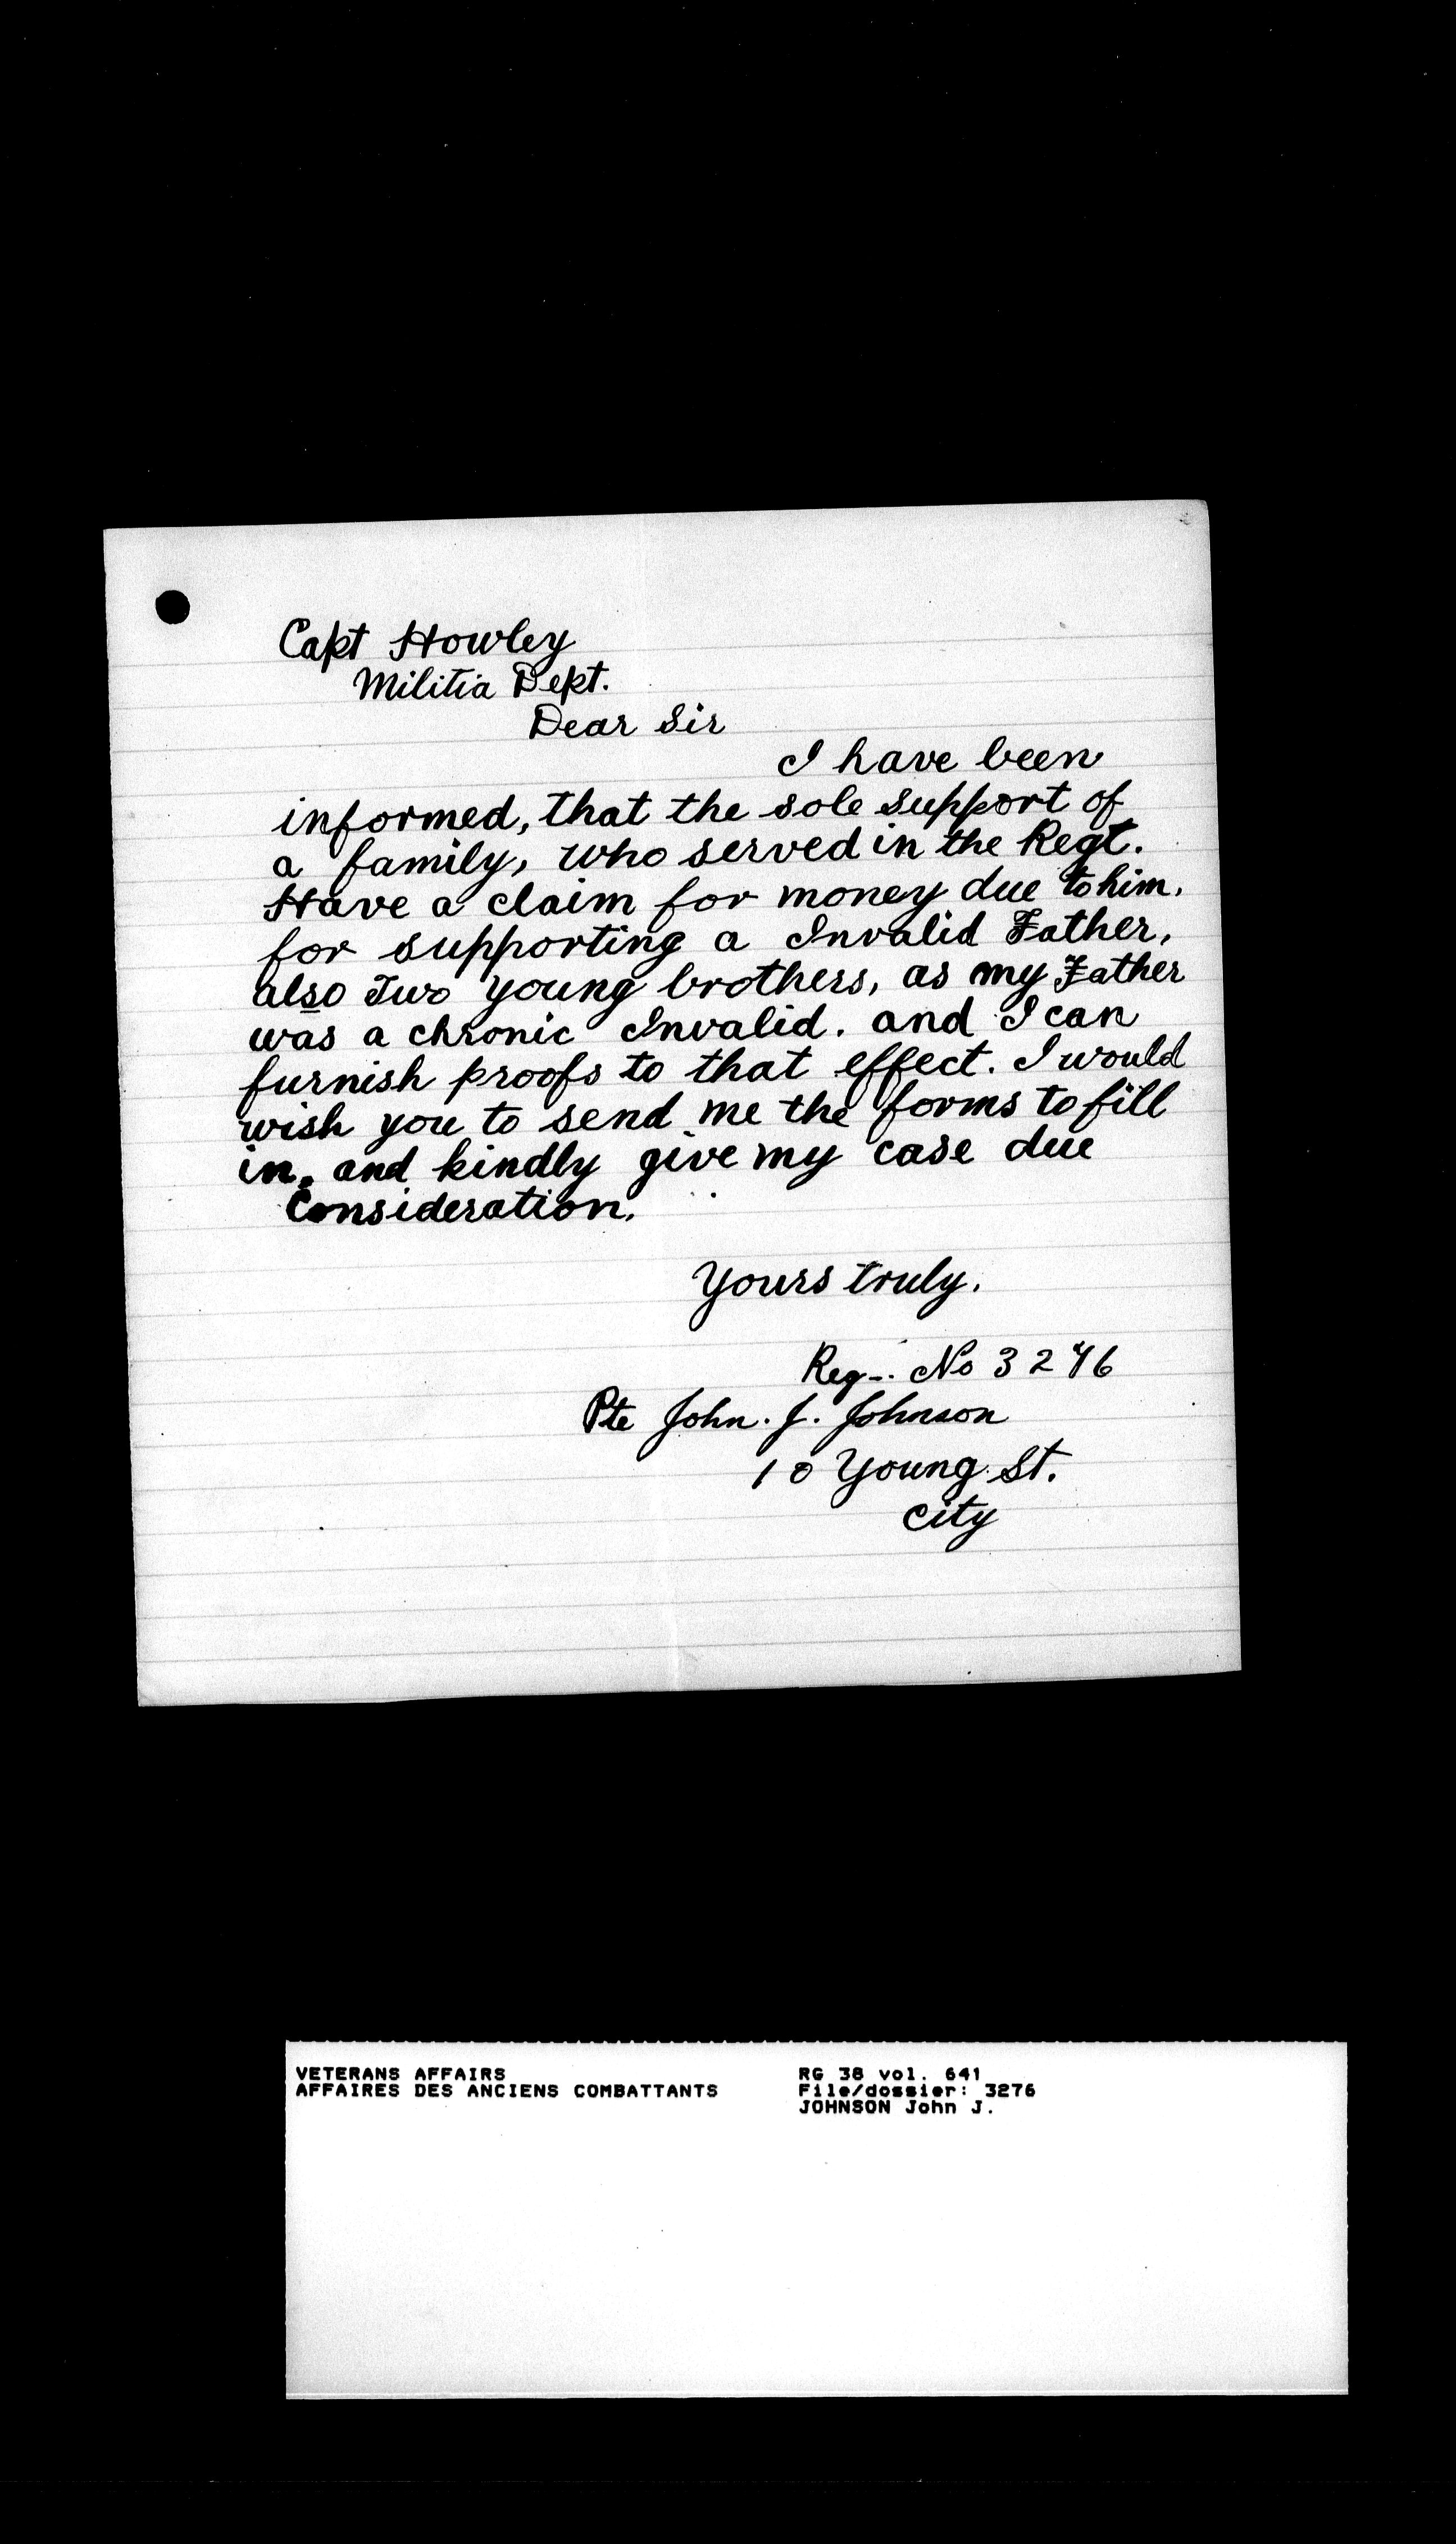 Capt Howley
Militia Dept.
Dear Sir
I have been
informed, that the sole support of
a family, who served in the Regt.
Have a claim for money due to him.
for supporting a Invalid Father,
also Two young brothers, as my Father
was a chronic Invalid. and I can
furnish proofs to that effect. I would
wish you to send me the forms to fill
in. and kindly give my case due
Consideration.
Yours truly.
Reg-. No 3276
Pte John. J. Johnson
10 Young St.
City
VETERANS AFFAIRS
AFFAIRES DES ANCIENS COMBATTANTS
RG 38 vol. 641
File/dossier: 3276
JOHNSON John J.